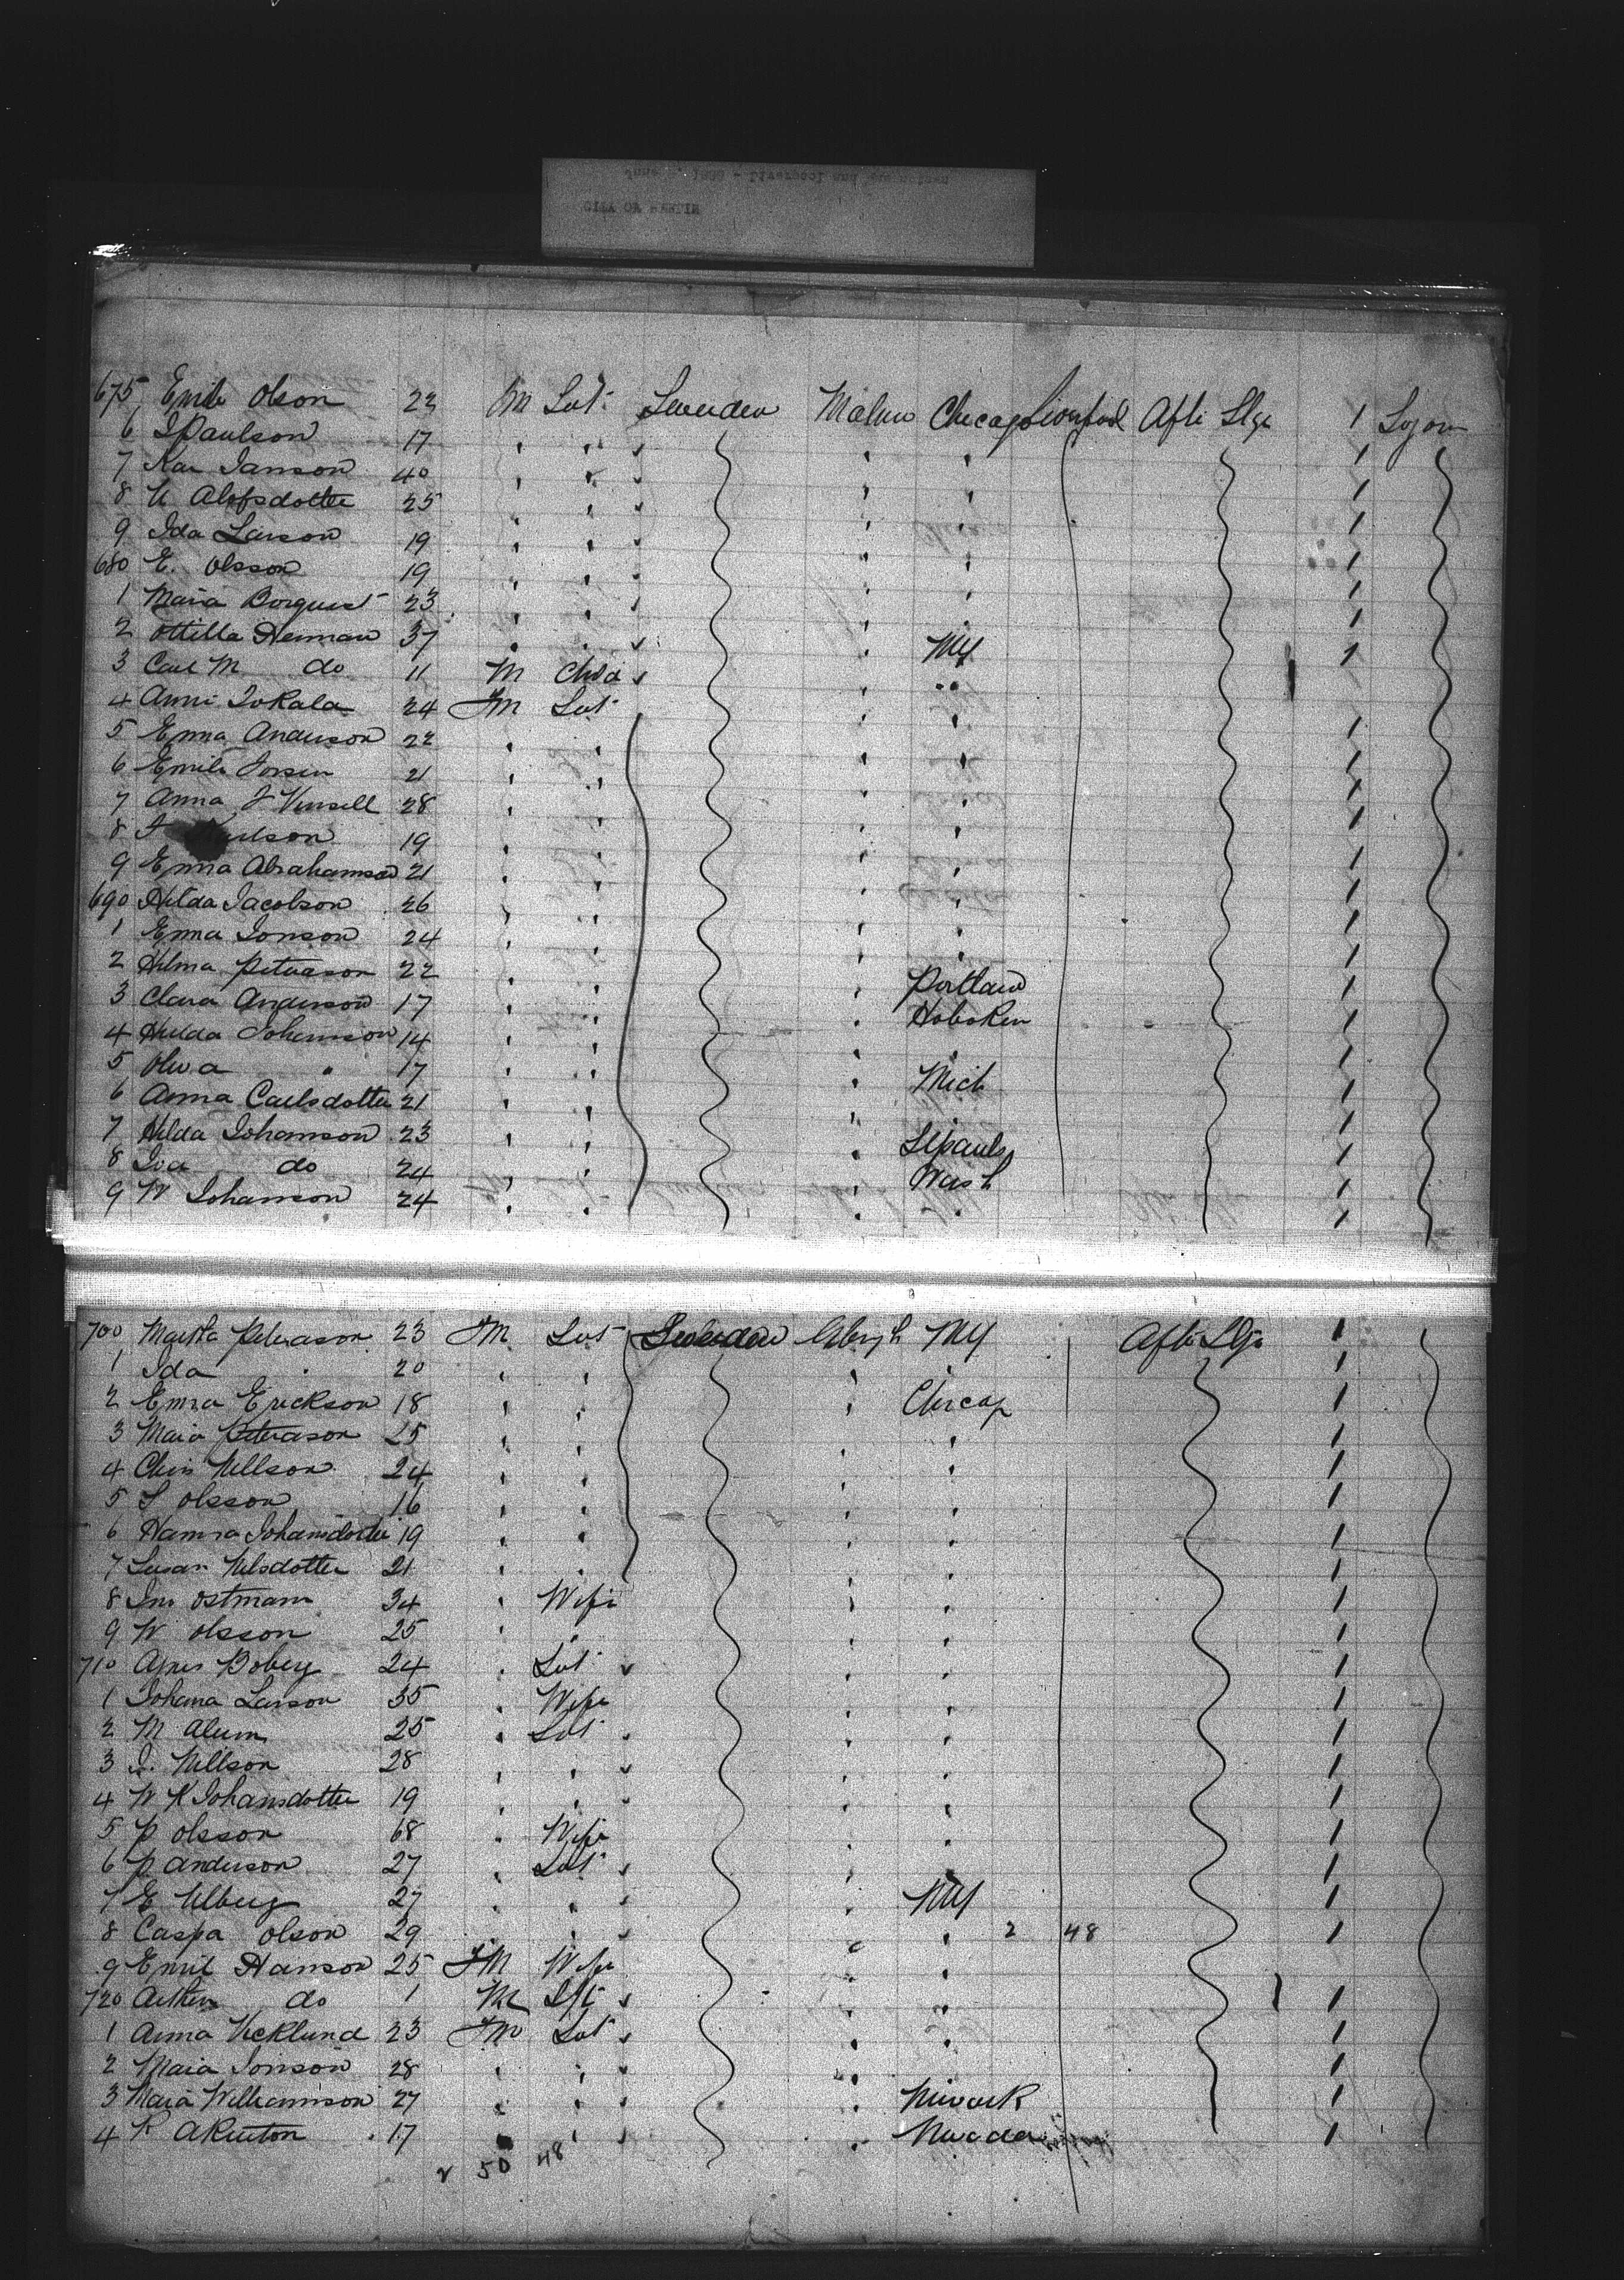 CITY OF BERLIN
675 Emile Olson 22 Fm Svt Sweeden Malmo Chicago Liverpool Afte Stge 1 Sojorn
6 I Paulson 17 1
7 Kar Janson 40 1
8 U Alofsdotter 25 1
9 Ida Larson 19 1
680 E. Olsson 19 1
1 Maria Borquist 23 1
2 Ottilla Herman 37 NY 1
3 Carl M do 11 M Child
4 Anni Jokala 24 Fm Svt 1
5 Emma Anderson 22 1
6 Emile Forsen 21 1
7 Anna J Vinsell 28 1
8 19 1
9 Emma Abrahamson 21 1
690 Hilda Jacobson 26 1
1 Emma Jonson 24 1
2 Hilma Peterson 22 Portland 1
3 Clara Anderson 17 Hoboken 1
4 Hulda Johanson 14 1
5 Oliva " 17 Mich 1
6 Anna Carlsdotter 21 1
7 Hilda Johanson 23 St Pauls 1
8 do 24 Wash 1
9 W Johanson 24 1
700 Martha Peterson 23 Fm Svt Sweeden NY Afte Stge 1
1 Ida " 20 1
2 Emma Erickson 18 Chicag 1
3 Maria Peterson 25 1
4 Chris Nellson 24 1
5 S Olsson 16 1
6 Hanna Johansdotter 19 1
7 Susan Nelsdotter 21 1
8 Ostmann 34 Wife 1
9 W Olsson 25 1
710 Agnes Boberg 24 Svt 1
1 Johana Larson 35 Wife 1
2 M Alum 25 Svt 1
3 J. Nellson 28 1
4 W K Johansdotter 19 1
5 P Olsson 68 Wife 1
6 P Anderson 27 Svt 1
7 E Ulberg 27 NY 1
8 Caspa Olson 29 2 48 1
9 Emil Hanson 25 Fm Wife
720 Arthur do 1 M Ift 1
1 Anna Vicklund 23 Fm Svt 1
2 Maia Jonson 28 1
3 Maia Williamson 27 Newark 1
4 K Akerton 17 Nevada 1
2 50 48